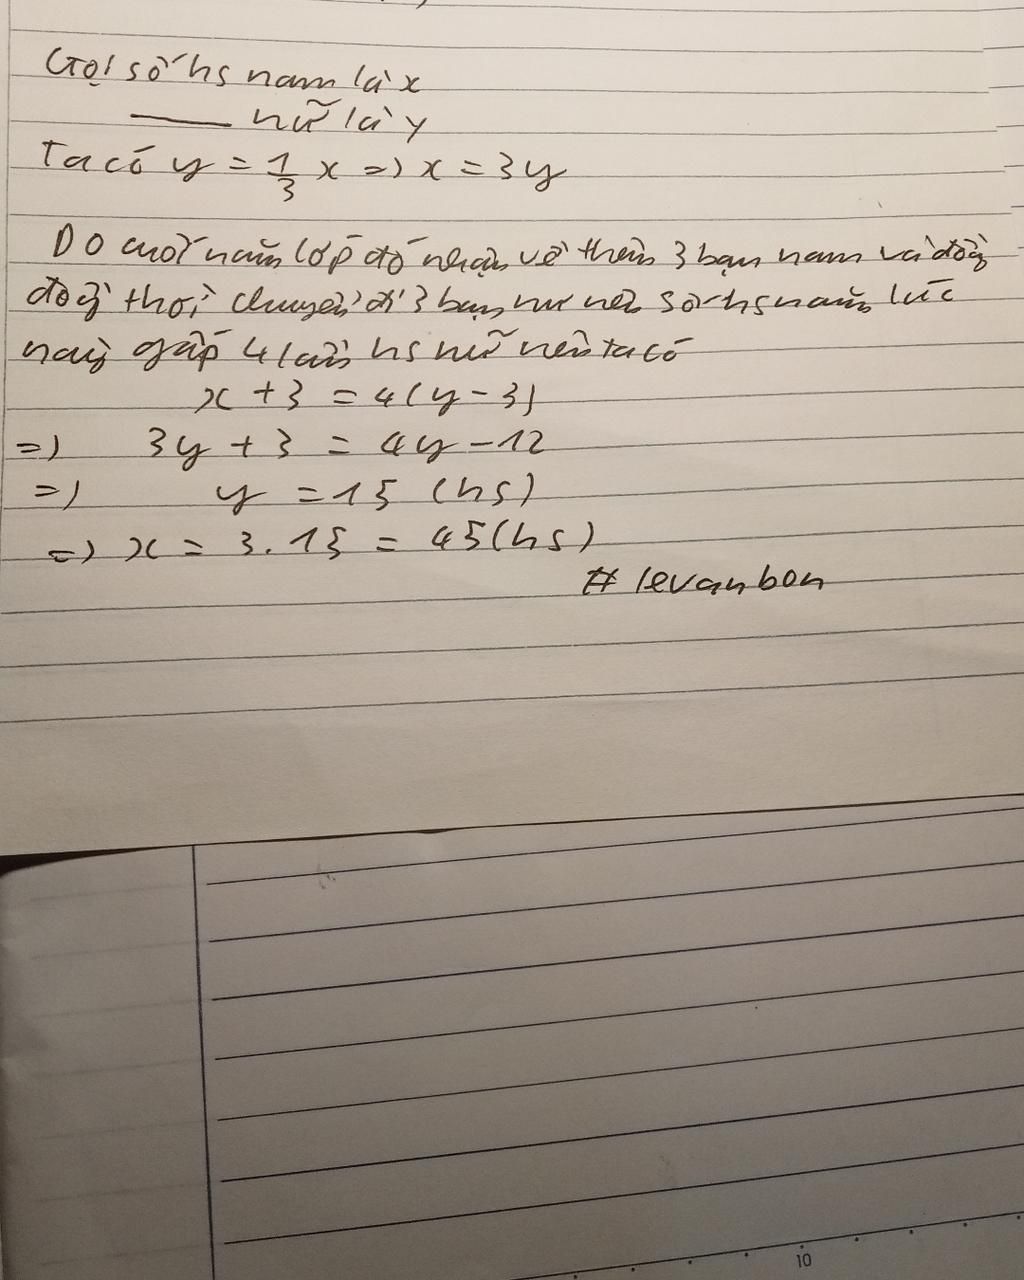 Gọi số hs nam là x
—— nữ là y
Ta có y = 1/3 x => x = 3y
Do cuối năm lớp đó nhận về thêm 3 bạn nam và đồng
đồng thời chuyển đi 3 bạn nữ nên số hs nam lúc
này gấp 4 lần hs nữ nên ta có
x + 3 = 4(y - 3)
=> 3y + 3 = 4y - 12
=> y = 15 (hs)
=> x = 3.15 = 45 (hs)
# levanbon
10